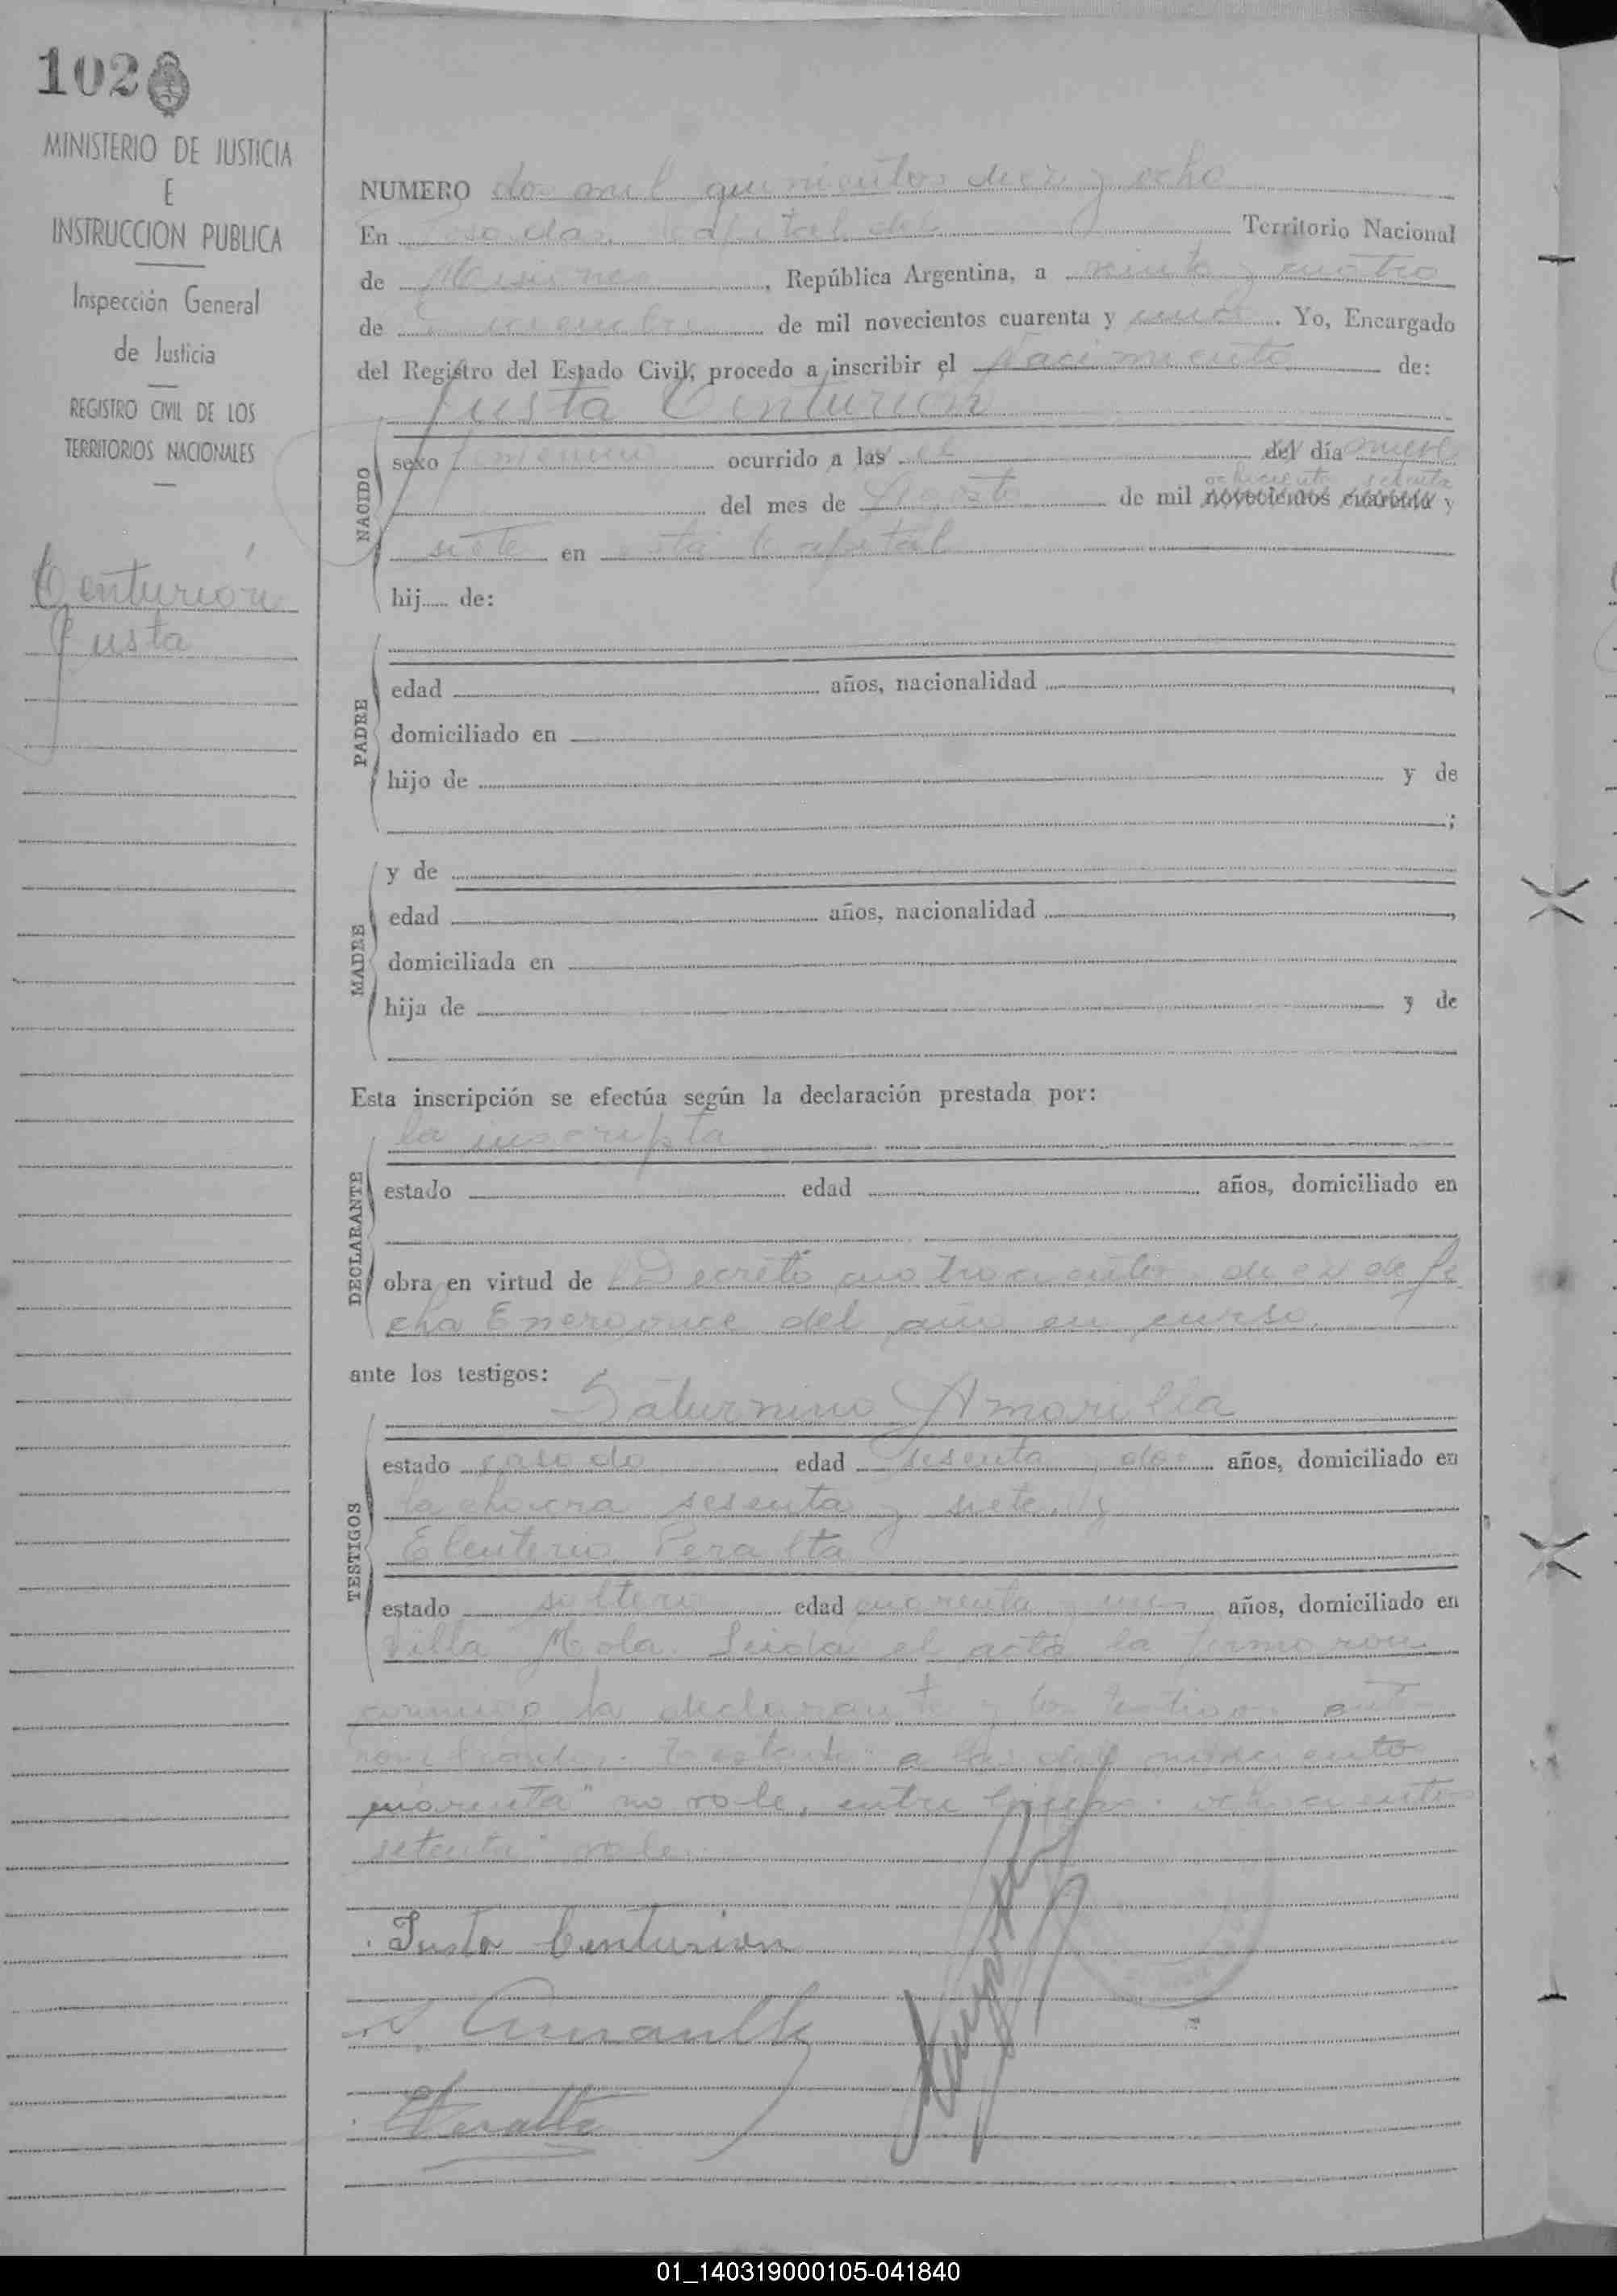 102
MINISTERIO DE JUSTICIA
E
INSTRUCCION PUBLICA
Inspección General
de Justicia
REGISTRO CIVIL DE LOS
TERRITORIOS NACIONALES
Centurión
Justa
NUMERO dos mil quinientos diez y ocho
En Posadas, Capital del Territorio Nacional
de Misiones, República Argentina, a veinte y cuatro
de de mil novecientos cuarenta y uno. Yo, Encargado
del Registro del Estado Civil, procedo a inscribir el Nacimiento de:
Justa Centurion
NACIDO
sexo femenino ocurrido a las el del día nueve
ochocientos setenta
del mes de Agosto de mil novecientos cuarenta y
siete en esta Capital
hij..... de:
PADRE
edad años, nacionalidad
domiciliado en
hijo de y de
;
MADRE
y de
edad años, nacionalidad
domiciliada en
hija de y de
Esta inscripción se efectúa según la declaración prestada por:
DECLARANTE
la inscripta
estado edad años, domiciliado en
obra en virtud de Decreto cuatrocientos diez de fe
cha Enero once del año en curso.
ante los testigos:
TESTIGOS
Saturnino Amarilla
estado casado edad sesenta y dos años, domiciliado en
la chacra sesenta y siete, y
Eleuterio Peralta
estado soltero edad cuarenta y un años, domiciliado en
Villa Mola. Leida el acta la firmaron
conmigo la declarante y los testigos ante
nombrados. Testado: a las del novecientos
cuarenta" no vale, entre lineas: ochocientos
setenta vale.
Justa Centurion
Amarilla
EPeralta
01_140319000105-041840